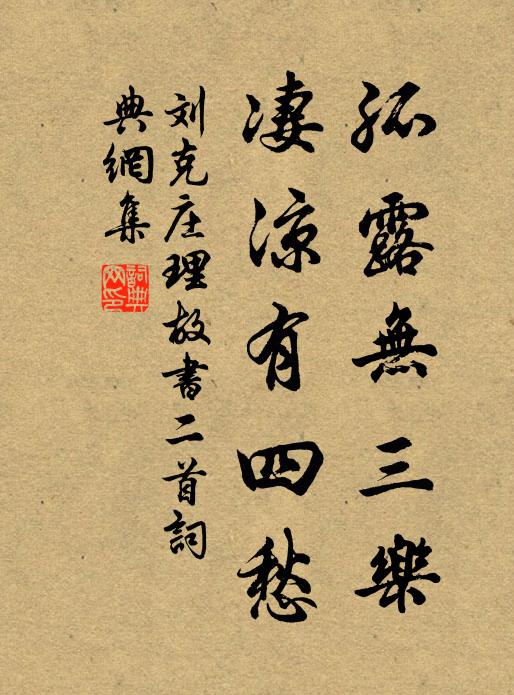 孤露無三樂
凄涼有四愁
刘克庄理故書二首詞
典網集
詞典网印